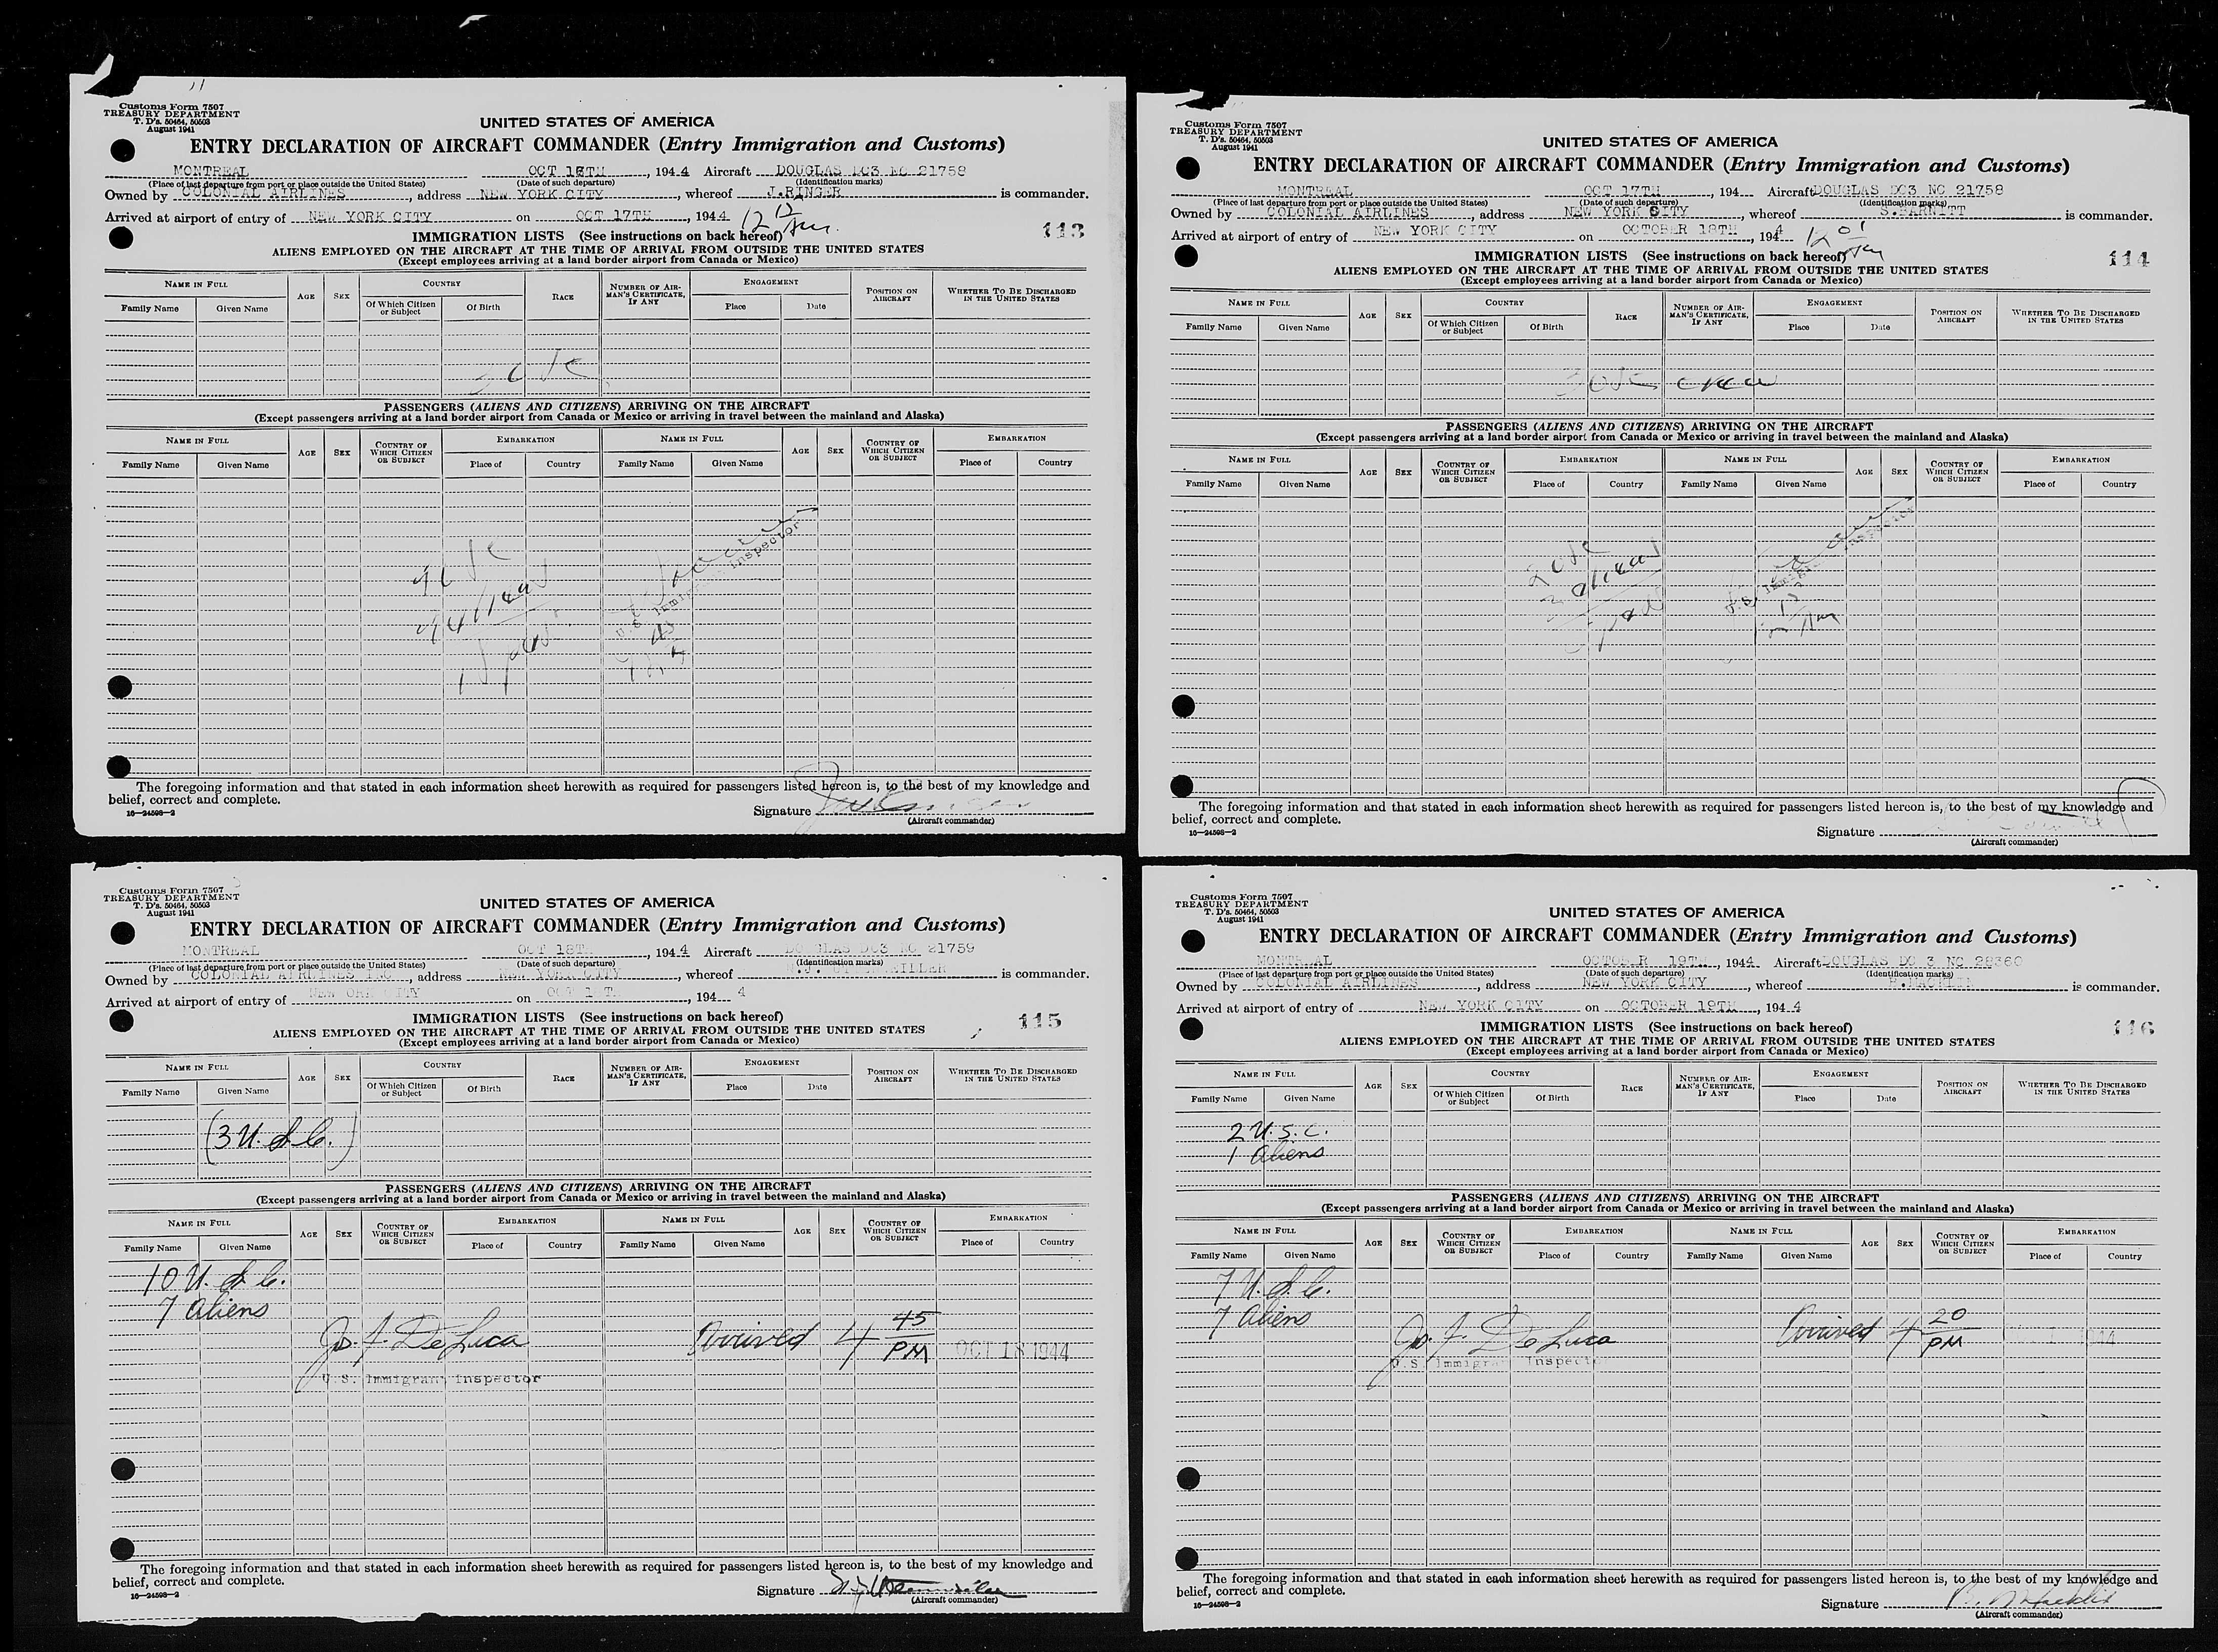 Customs Form 7507
TREASURY DEPARTMENT
T. D's. 50464, 50503
August 1941
UNITED STATES OF AMERICA
ENTRY DECLARATION OF AIRCRAFT COMMANDER (Entry Immigration and Customs)
MONTREAL OCT 16TH, 1944 Aircraft DOUGLAS DC3 NC 21758
(Place of last departure from port or place outside the United States) (Date of such departure) (Identification marks)
Owned by COLONIAL AIRLINES, address NEW YORK CITY, whereof J.RINGER is commander.
Arrived at airport of entry of NEW YORK CITY on OCT 17TH, 1944 12 12 Am.
IMMIGRATION LISTS (See instructions on back hereof) 113
ALIENS EMPLOYED ON THE AIRCRAFT AT THE TIME OF ARRIVAL FROM OUTSIDE THE UNITED STATES
(Except employees arriving at a land border airport from Canada or Mexico)
NAME IN FULL AGE SEX COUNTRY RACE NUMBER OF AIRMAN'S CERTIFICATE, IF ANY ENGAGEMENT POSITION ON AIRCRAFT WHETHER TO BE DISCHARGED IN THE UNITED STATES
Family Name Given Name Of Which Citizen or Subject Of Birth Place Date
PASSENGERS (ALIENS AND CITIZENS) ARRIVING ON THE AIRCRAFT
(Except passengers arriving at a land border airport from Canada or Mexico or arriving in travel between the mainland and Alaska)
NAME IN FULL AGE SEX COUNTRY OF WHICH CITIZEN OR SUBJECT EMBARKATION NAME IN FULL AGE SEX COUNTRY OF WHICH CITIZEN OR SUBJECT EMBARKATION
Family Name Given Name Place of Country Family Name Given Name Place of Country
U.S. Immigrant Inspector
The foregoing information and that stated in each information sheet herewith as required for passengers listed hereon is, to the best of my knowledge and
belief, correct and complete.
16—24598-2
Signature
(Aircraft commander)
Customs Form 7507
TREASURY DEPARTMENT
T. D's. 50464, 50503
August 1941
UNITED STATES OF AMERICA
ENTRY DECLARATION OF AIRCRAFT COMMANDER (Entry Immigration and Customs)
MONTREAL OCT 17TH, 194 Aircraft DOUGLAS DC3 NC 21758
(Place of last departure from port or place outside the United States) (Date of such departure) (Identification marks)
Owned by COLONIAL AIRLINES, address NEW YORK CITY, whereof S.BARNITT is commander.
Arrived at airport of entry of NEW YORK CITY on OCTOBER 18TH, 1944 12 01 Am
IMMIGRATION LISTS (See instructions on back hereof) 114
ALIENS EMPLOYED ON THE AIRCRAFT AT THE TIME OF ARRIVAL FROM OUTSIDE THE UNITED STATES
(Except employees arriving at a land border airport from Canada or Mexico)
NAME IN FULL AGE SEX COUNTRY RACE NUMBER OF AIRMAN'S CERTIFICATE, IF ANY ENGAGEMENT POSITION ON AIRCRAFT WHETHER TO BE DISCHARGED IN THE UNITED STATES
Family Name Given Name Of Which Citizen or Subject Of Birth Place Date
crew
PASSENGERS (ALIENS AND CITIZENS) ARRIVING ON THE AIRCRAFT
(Except passengers arriving at a land border airport from Canada or Mexico or arriving in travel between the mainland and Alaska)
NAME IN FULL AGE SEX COUNTRY OF WHICH CITIZEN OR SUBJECT EMBARKATION NAME IN FULL AGE SEX COUNTRY OF WHICH CITIZEN OR SUBJECT EMBARKATION
Family Name Given Name Place of Country Family Name Given Name Place of Country
U.S. Immigrant Inspector
The foregoing information and that stated in each information sheet herewith as required for passengers listed hereon is, to the best of my knowledge and
belief, correct and complete.
16—24598-2
Signature
(Aircraft commander)
Customs Form 7507
TREASURY DEPARTMENT
T. D's. 50464, 50503
August 1941
UNITED STATES OF AMERICA
ENTRY DECLARATION OF AIRCRAFT COMMANDER (Entry Immigration and Customs)
MONTREAL OCT 18TH, 1944 Aircraft DOUGLAS DC3 NC 21759
(Place of last departure from port or place outside the United States) (Date of such departure) (Identification marks)
Owned by COLONIAL AIRLINES INC, address NEW YORK CITY, whereof is commander.
Arrived at airport of entry of NEW YORK CITY on OCT 18TH, 194 4
IMMIGRATION LISTS (See instructions on back hereof) 115
ALIENS EMPLOYED ON THE AIRCRAFT AT THE TIME OF ARRIVAL FROM OUTSIDE THE UNITED STATES
(Except employees arriving at a land border airport from Canada or Mexico)
NAME IN FULL AGE SEX COUNTRY RACE NUMBER OF AIRMAN'S CERTIFICATE, IF ANY ENGAGEMENT POSITION ON AIRCRAFT WHETHER TO BE DISCHARGED IN THE UNITED STATES
Family Name Given Name Of Which Citizen or Subject Of Birth Place Date
(3 U.S.C.)
PASSENGERS (ALIENS AND CITIZENS) ARRIVING ON THE AIRCRAFT
(Except passengers arriving at a land border airport from Canada or Mexico or arriving in travel between the mainland and Alaska)
NAME IN FULL AGE SEX COUNTRY OF WHICH CITIZEN OR SUBJECT EMBARKATION NAME IN FULL AGE SEX COUNTRY OF WHICH CITIZEN OR SUBJECT EMBARKATION
Family Name Given Name Place of Country Family Name Given Name Place of Country
10 U.S.C.
7 Aliens
Jos. J. DeLuca Arrived 4 45 PM OCT 18 1944
U.S. Immigrant Inspector
The foregoing information and that stated in each information sheet herewith as required for passengers listed hereon is, to the best of my knowledge and
belief, correct and complete.
16—24598-2
Signature
(Aircraft commander)
Customs Form 7507
TREASURY DEPARTMENT
T. D's. 50464, 50503
August 1941
UNITED STATES OF AMERICA
ENTRY DECLARATION OF AIRCRAFT COMMANDER (Entry Immigration and Customs)
MONTREAL OCTOBER 19TH, 1944 Aircraft DOUGLAS DC 3 NC 28360
(Place of last departure from port or place outside the United States) (Date of such departure) (Identification marks)
Owned by COLONIAL AIRLINES, address NEW YORK CITY, whereof is commander.
Arrived at airport of entry of NEW YORK CITY on OCTOBER 19TH, 1944
IMMIGRATION LISTS (See instructions on back hereof) 116
ALIENS EMPLOYED ON THE AIRCRAFT AT THE TIME OF ARRIVAL FROM OUTSIDE THE UNITED STATES
(Except employees arriving at a land border airport from Canada or Mexico)
NAME IN FULL AGE SEX COUNTRY RACE NUMBER OF AIRMAN'S CERTIFICATE, IF ANY ENGAGEMENT POSITION ON AIRCRAFT WHETHER TO BE DISCHARGED IN THE UNITED STATES
Family Name Given Name Of Which Citizen or Subject Of Birth Place Date
2 U.S.C.
1 Aliens
PASSENGERS (ALIENS AND CITIZENS) ARRIVING ON THE AIRCRAFT
(Except passengers arriving at a land border airport from Canada or Mexico or arriving in travel between the mainland and Alaska)
NAME IN FULL AGE SEX COUNTRY OF WHICH CITIZEN OR SUBJECT EMBARKATION NAME IN FULL AGE SEX COUNTRY OF WHICH CITIZEN OR SUBJECT EMBARKATION
Family Name Given Name Place of Country Family Name Given Name Place of Country
7 U.S.C.
7 Aliens
Jos. J. DeLuca Arrived 4 20 PM 1944
U.S. Immigrant Inspector
The foregoing information and that stated in each information sheet herewith as required for passengers listed hereon is, to the best of my knowledge and
belief, correct and complete.
16—24598-2
Signature
(Aircraft commander)